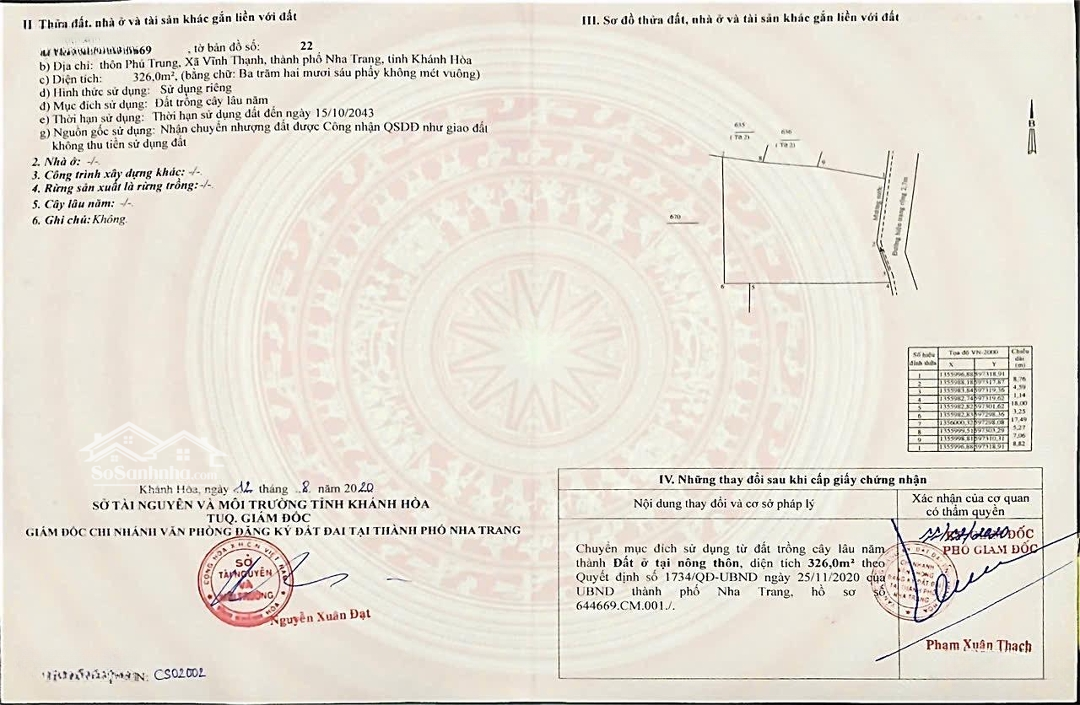 II Thửa đất, nhà ở và tài sản khác gắn liền với đất
69 , tờ bản đồ số: 22
b) Địa chỉ: thôn Phú Trung, Xã Vĩnh Thạnh, thành phố Nha Trang, tỉnh Khánh Hòa
c) Diện tích: 326,0m², (bằng chữ: Ba trăm hai mươi sáu phẩy không mét vuông)
d) Hình thức sử dụng: Sử dụng riêng
đ) Mục đích sử dụng: Đất trồng cây lâu năm
e) Thời hạn sử dụng: Thời hạn sử dụng đất đến ngày 15/10/2043
g) Nguồn gốc sử dụng: Nhận chuyển nhượng đất được Công nhận QSDĐ như giao đất
không thu tiền sử dụng đất
2. Nhà ở: -/-
3. Công trình xây dựng khác: -/-
4. Rừng sản xuất là rừng trồng: -/-
5. Cây lâu năm: -/-
6. Ghi chú: Không.
SoSanhnha.com
Khánh Hòa, ngày 12 tháng 8 năm 2020
SỞ TÀI NGUYÊN VÀ MÔI TRƯỜNG TỈNH KHÁNH HÒA
TUQ. GIÁM ĐỐC
GIÁM ĐỐC CHI NHÁNH VĂN PHÒNG ĐĂNG KÝ ĐẤT ĐAI TẠI THÀNH PHỐ NHA TRANG
SỞ
TÀI NGUYÊN
VÀ
Nguyễn Xuân Đạt
CS02002
III. Sơ đồ thửa đất, nhà ở và tài sản khác gắn liền với đất
B
635
(Tờ 2)
636
(Tờ 2)
670
8
9
Mương nước
Đường hiện trạng rộng 2.7m
2
3
4
5
6
Số hiệu đỉnh thửa Tọa độ VN-2000 Chiều dài (m)
X Y
1 1355996.88 597318.91
8.76
2 1355988.18 597317.87
4.59
3 1355983.84 597319.36
1.14
4 1355982.74 597319.62
18.00
5 1355982.82 597301.62
3.25
6 1355982.83 597298.36
17.49
7 1356000.32 597298.08
5.27
8 1355999.51 597303.29
7.06
9 1355998.81 597310.31
8.82
1 1355996.88 597318.91
IV. Những thay đổi sau khi cấp giấy chứng nhận
Nội dung thay đổi và cơ sở pháp lý
Xác nhận của cơ quan
có thẩm quyền
Chuyển mục đích sử dụng từ đất trồng cây lâu năm
thành Đất ở tại nông thôn, diện tích 326,0m² theo
Quyết định số 1734/QĐ-UBND ngày 25/11/2020 của
UBND thành phố Nha Trang, hồ sơ số
644669.CM.001./.
PHÓ GIÁM ĐỐC
Phạm Xuân Thạch